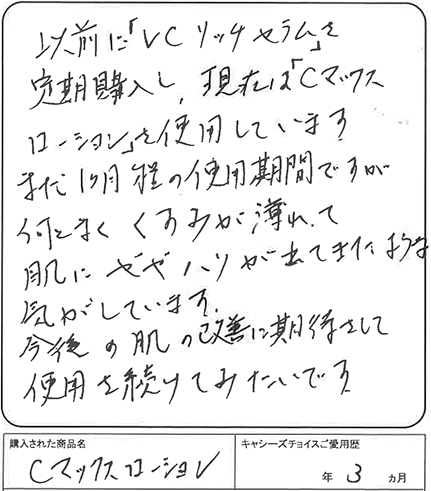 以前に「VCリッチセラム」を
定期購入し、現在は「Cマックス
ローション」を使用しています
まだ1ヶ月程の使用期間ですが
何となくくすみが薄れて
肌にややハリが出てきたような
気がしています。
今後の肌の改善に期待をして
使用を続けてみたいです
購入された商品名
Cマックスローション
キャシーズチョイスご愛用歴
年 3 ヵ月